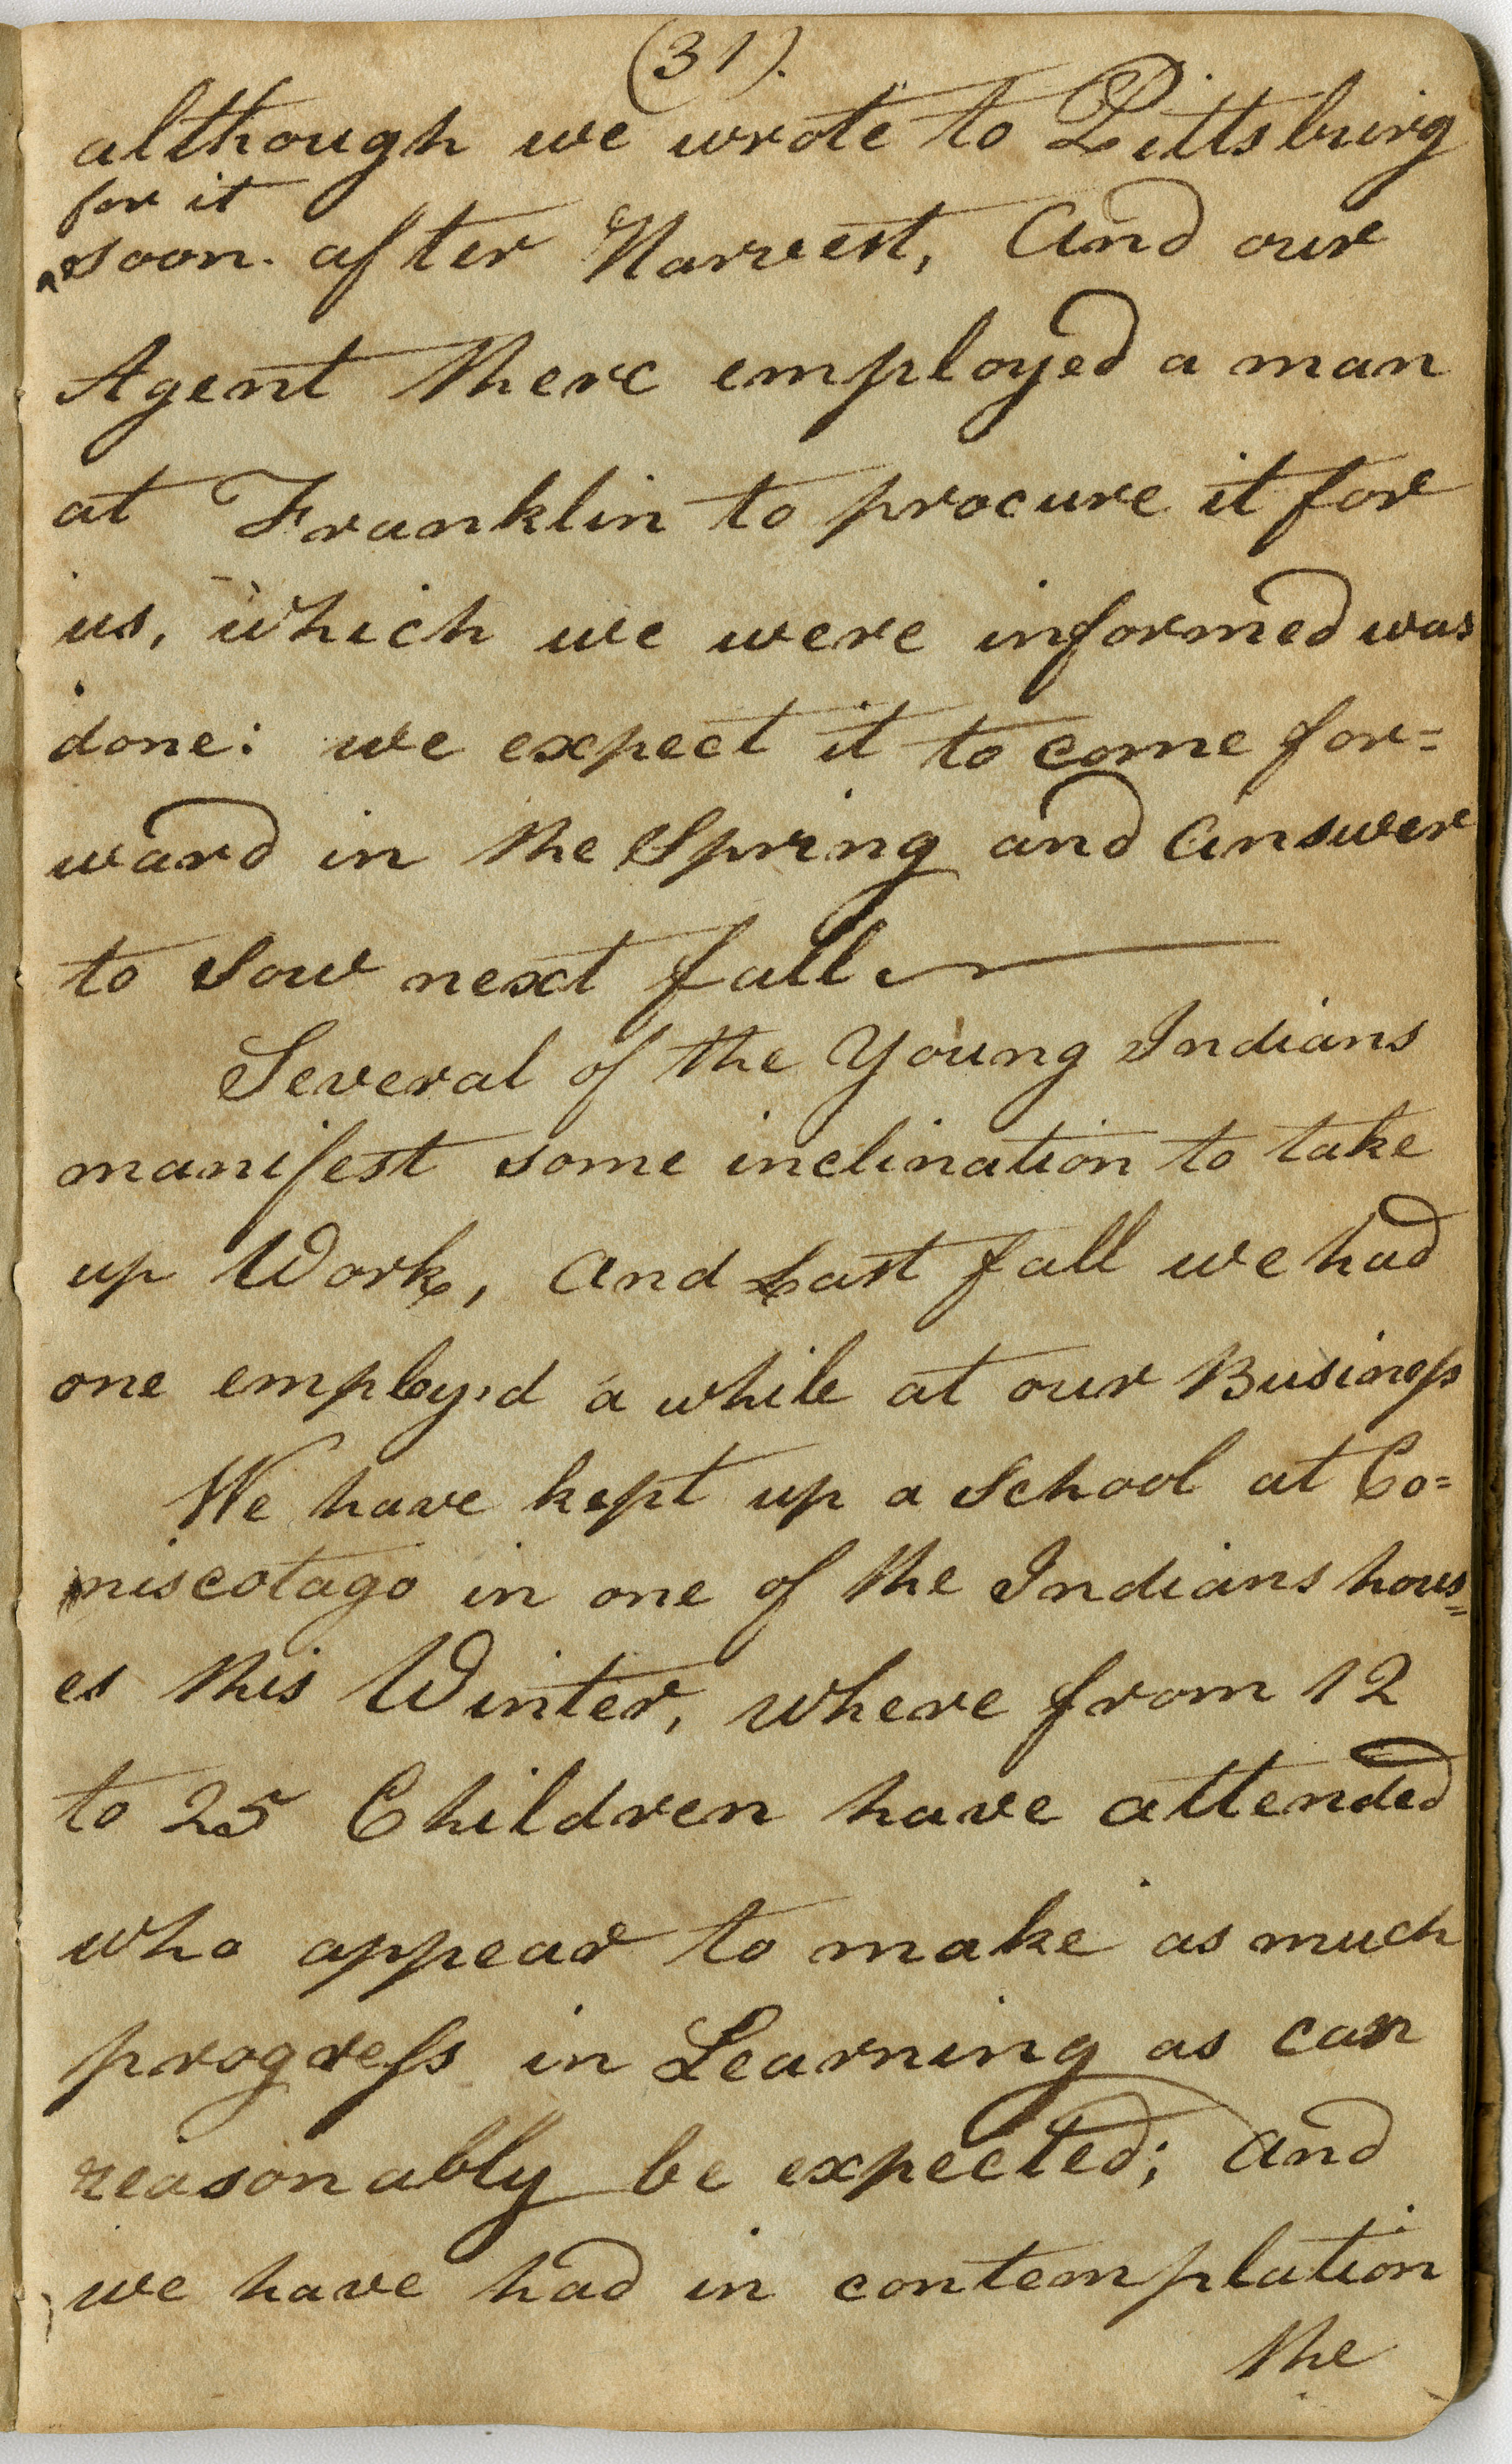 (31).
although we wrote to Pittsburg
for it
^soon after Harvest, And our
Agent there employed a man
at Franklin to procure it for
us, which we were informed was
done: we expect it to come for=
ward in the Spring and Answer
to Sow next fall
Several of the Young Indians
manifest some inclination to take
up Work, And Last fall we had
one employ'd a while at our Business
We have kept up a School at Co=
niscotago in one of the Indians hous=
es this Winter, where from 12
to 25 Children have attended
who appear to make as much
progress in Learning as can
reasonably be expected; And
we have had in contemplation
the